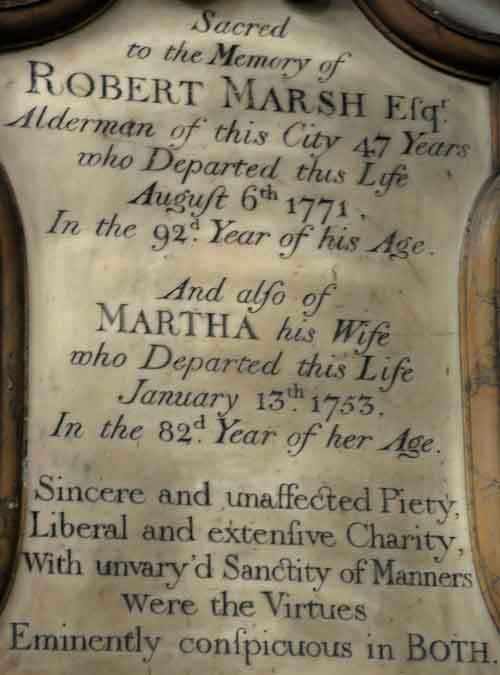 Sacred
to the Memory of
ROBERT MARSH Eſqr.
Alderman of this City 47 Years
who Departed this Life
Auguſt 6th 1771.
In the 92d. Year of his Age.
And alſo of
MARTHA his Wife
who Departed this Life
January 13th. 1753.
In the 82d. Year of her Age.
Sincere and unaffected Piety,
Liberal and extenſive Charity,
With unvary'd Sanctity of Manners
Were the Virtues
Eminently conſpicuous in BOTH.